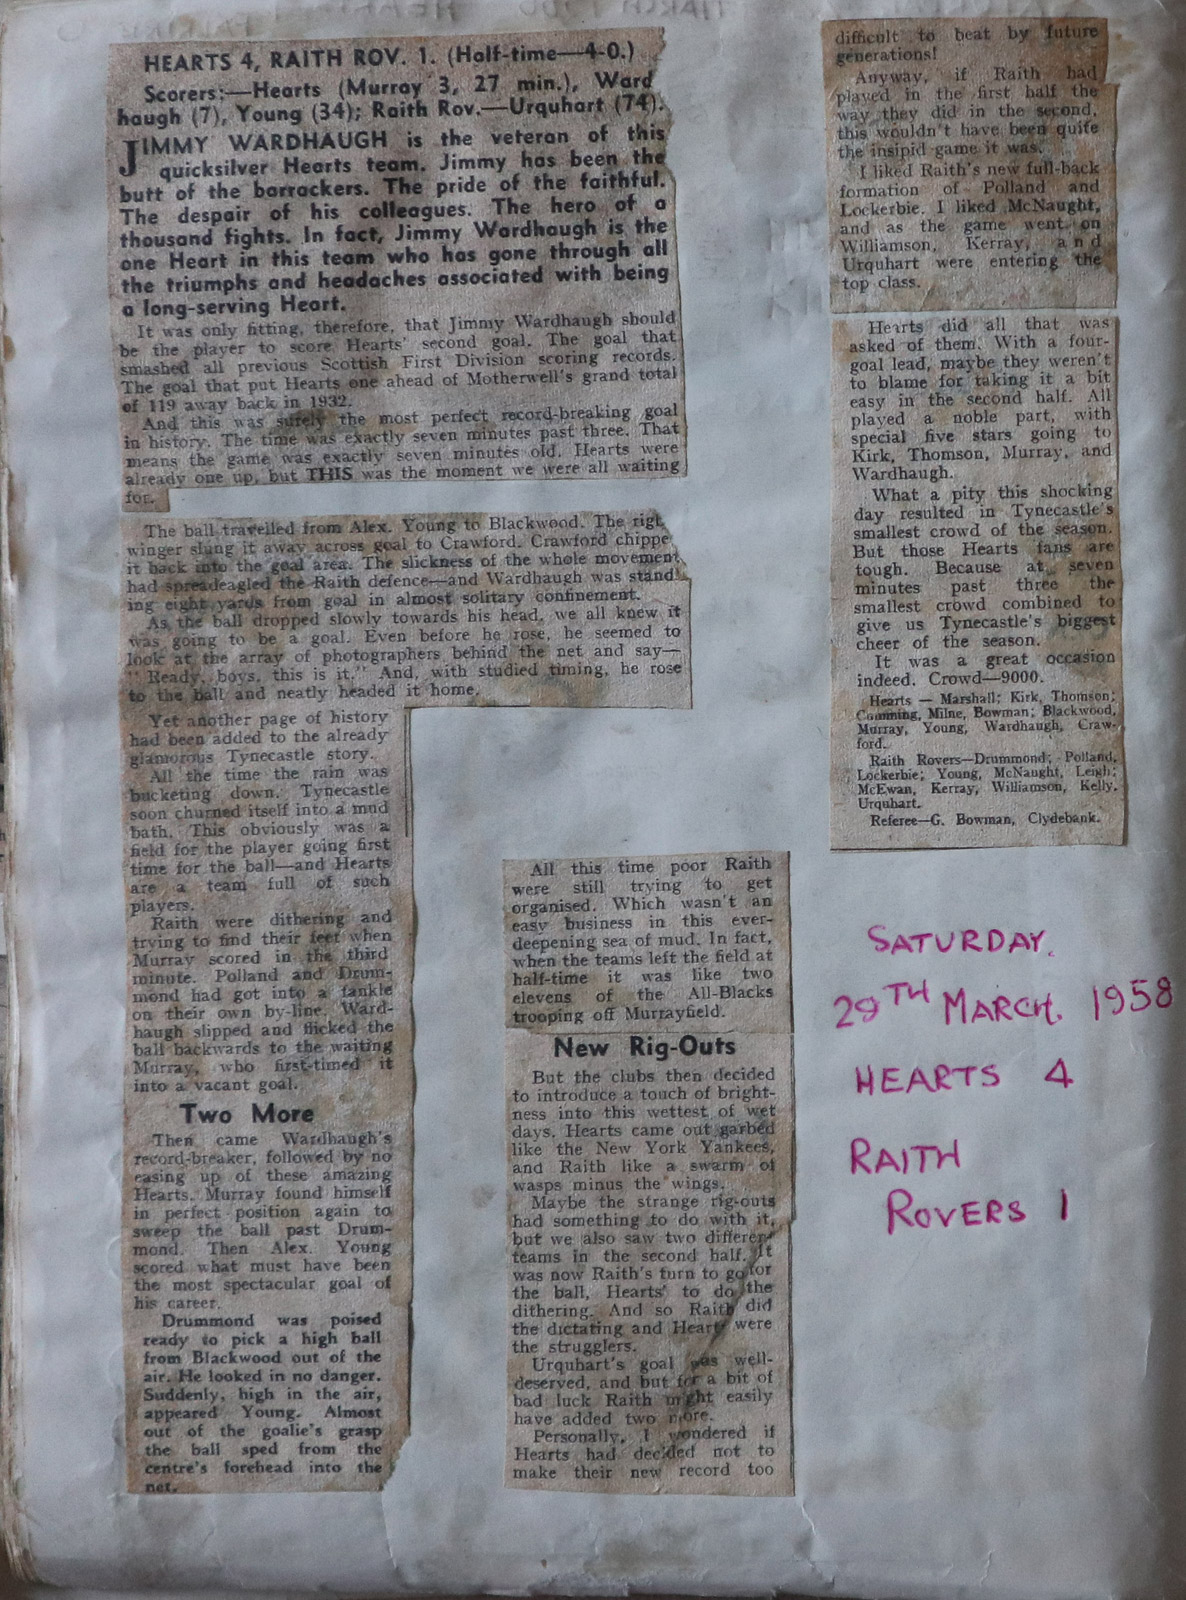 HEARTS 4, RAITH ROV. 1. (Half-time—4-0.)
Scorers:—Hearts (Murray 3, 27 min.), Ward
haugh (7), Young (34); Raith Rov.—Urquhart (74).
JIMMY WARDHAUGH is the veteran of this
quicksilver Hearts team. Jimmy has been the
butt of the barrackers. The pride of the faithful.
The despair of his colleagues. The hero of a
thousand fights. In fact, Jimmy Wardhaugh is the
one Heart in this team who has gone through all
the triumphs and headaches associated with being
a long-serving Heart.
It was only fitting, therefore, that Jimmy Wardhaugh should
be the player to score Hearts' second goal. The goal that
smashed all previous Scottish First Division scoring records.
The goal that put Hearts one ahead of Motherwell's grand total
of 119 away back in 1932.
And this was surely the most perfect record-breaking goal
in history. The time was exactly seven minutes past three. That
means the game was exactly seven minutes old. Hearts were
already one up, but THIS was the moment we were all waiting
for.
The ball travelled from Alex. Young to Blackwood. The rigt
winger slung it away across goal to Crawford. Crawford chippe
it back into the goal area. The slickness of the whole movement
had spreadeagled the Raith defence—and Wardhaugh was stand
ing eight yards from goal in almost solitary confinement.
As the ball dropped slowly towards his head, we all knew it
was going to be a goal. Even before he rose, he seemed to
look at the array of photographers behind the net and say—
" Ready, boys, this is it." And, with studied timing, he rose
to the ball and neatly headed it home.
Yet another page of history
had been added to the already
glamorous Tynecastle story.
All the time the rain was
bucketing down. Tynecastle
soon churned itself into a mud
bath. This obviously was a
field for the player going first
time for the ball—and Hearts
are a team full of such
players.
Raith were dithering and
trying to find their feet when
Murray scored in the third
minute. Polland and Drum-
mond had got into a tankle
on their own by-line. Ward-
haugh slipped and flicked the
ball backwards to the waiting
Murray, who first-timed it
into a vacant goal.
Two More
Then came Wardhaugh's
record-breaker, followed by no
easing up of these amazing
Hearts. Murray found himself
in perfect position again to
sweep the ball past Drum-
mond. Then Alex. Young
scored what must have been
the most spectacular goal of
his career.
Drummond was poised
ready to pick a high ball
from Blackwood out of the
air. He looked in no danger.
Suddenly, high in the air,
appeared Young. Almost
out of the goalie's grasp
the ball sped from the
centre's forehead into the
net.
All this time poor Raith
were still trying to get
organised. Which wasn't an
easy business in this ever-
deepening sea of mud. In fact,
when the teams left the field at
half-time it was like two
elevens of the All-Blacks
trooping off Murrayfield.
New Rig-Outs
But the clubs then decided
to introduce a touch of bright-
ness into this wettest of wet
days. Hearts came out garbed
like the New York Yankees,
and Raith like a swarm of
wasps minus the wings.
Maybe the strange rig-outs
had something to do with it,
but we also saw two different
teams in the second half. It
was now Raith's turn to go for
the ball, Hearts' to do the
dithering. And so Raith did
the dictating and Hearts were
the strugglers.
Urquhart's goal was well-
deserved, and but for a bit of
bad luck Raith might easily
have added two more.
Personally, I wondered if
Hearts had decided not to
make their new record too
difficult to beat by future
generations!
Anyway, if Raith had
played in the first half the
way they did in the second,
this wouldn't have been quite
the insipid game it was.
I liked Raith's new full-back
formation of Polland and
Lockerbie. I liked McNaught,
and as the game went on
Williamson, Kerray, and
Urquhart were entering the
top class.
Hearts did all that was
asked of them. With a four-
goal lead, maybe they weren't
to blame for taking it a bit
easy in the second half. All
played a noble part, with
special five stars going to
Kirk, Thomson, Murray, and
Wardhaugh.
What a pity this shocking
day resulted in Tynecastle's
smallest crowd of the season.
But those Hearts fans are
tough. Because at seven
minutes past three the
smallest crowd combined to
give us Tynecastle's biggest
cheer of the season.
It was a great occasion
indeed. Crowd—9000.
Hearts — Marshall; Kirk, Thomson;
Cumming, Milne, Bowman; Blackwood,
Murray, Young, Wardhaugh, Craw-
ford.
Raith Rovers—Drummond; Polland,
Lockerbie; Young, McNaught, Leigh;
McEwan, Kerray, Williamson, Kelly,
Urquhart.
Referee—G. Bowman, Clydebank.
SATURDAY.
29TH MARCH. 1958
HEARTS 4
RAITH
ROVERS 1